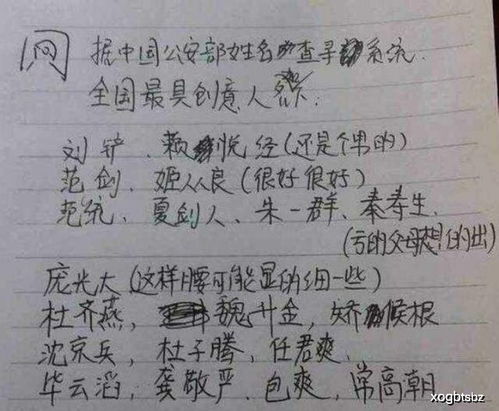 网 据中国公安部姓名查寻系统.
全国最具创意人名如下.
刘铲、赖悦经(还是个男的)
范剑、姬从良(很好很好)
范统、夏剑人、朱一群、秦寿生,
(亏的父母想的出)
庞光大(这样腰可能显的细一些)
杜齐燕, 魏斗金, 娇候根
沈京兵, 杜子腾, 任君爽,
毕云滔, 龚敬严, 包爽, 常高朝
xogbtsbz